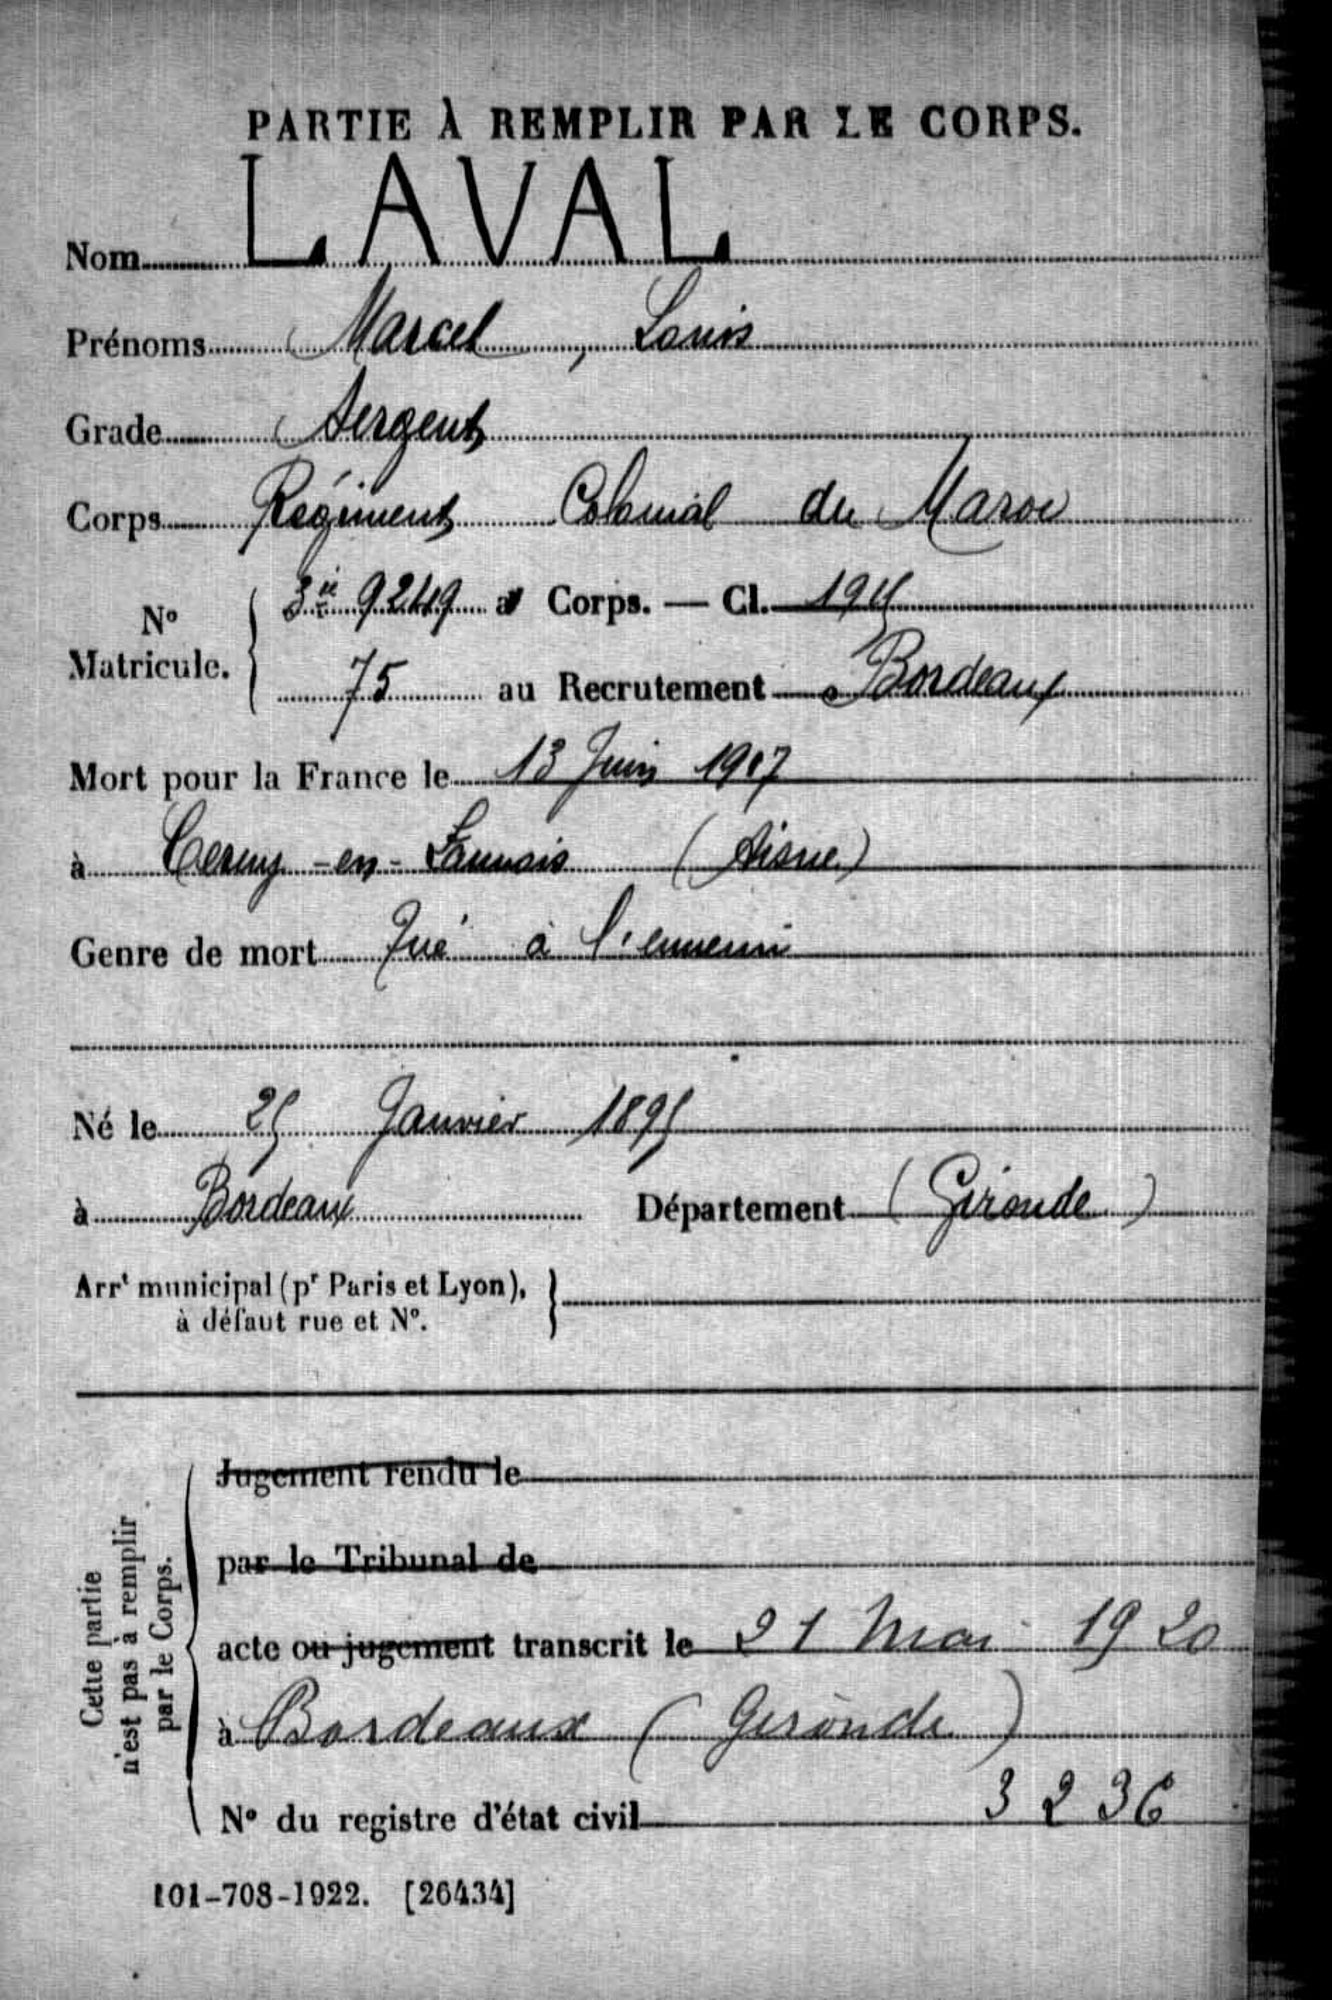 PARTIE À REMPLIR PAR LE CORPS.
Nom LAVAL
Prénoms Marcel, Louis
Grade Sergent
Corps Régiment Colonial du Maroc
N° Matricule. { 9249 au Corps. — Cl. 1915
75 au Recrutement Bordeaux
Mort pour la France le 13 Juin 1917
à Cerny-en-Lannois (Aisne)
Genre de mort Tué à l'ennemi
Né le 25 Janvier 1895
à Bordeaux Département (Gironde)
Arrt municipal (pr Paris et Lyon), à défaut rue et N°. }
Cette partie n'est pas à remplir par le Corps.
Jugement rendu le
par le Tribunal de
acte ou jugement transcrit le 21 Mai 1920
à Bordeaux (Gironde)
N° du registre d'état civil 3236
101-708-1922. [26434]